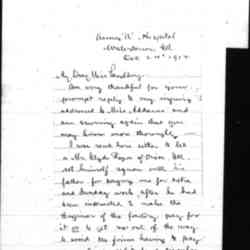 Hospital
Watertown, Ill.
Dec 24" 1914
My Dear Miss
Am very thankful for your
prompt reply to my inquiry
addressed to Miss Addams and
am writing again that you
may know more thoroughly
I was sent here either to let
a Mr. Clyde of Orion Ill.
set himself square with his
father for paying me for extra
and Sunday work after he had
been instructed to make the
of the pay for
it or to get me out of the way
to avoid his having to pay